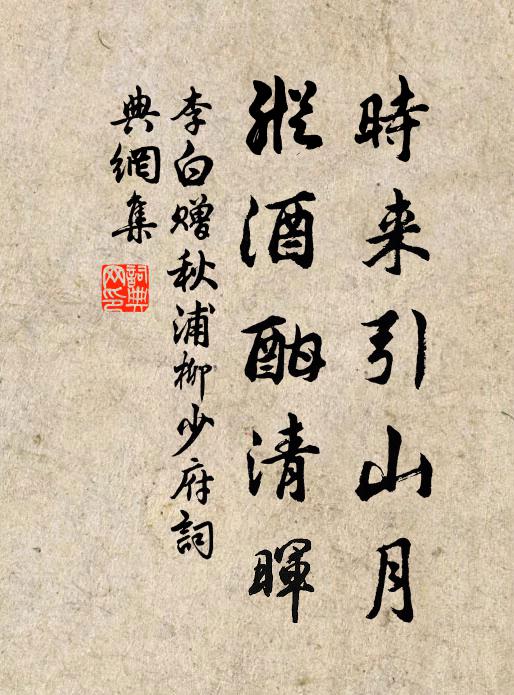 時来引山月
縱酒酣清暉
李白赠秋浦柳少府詞
典網集
詞典網印